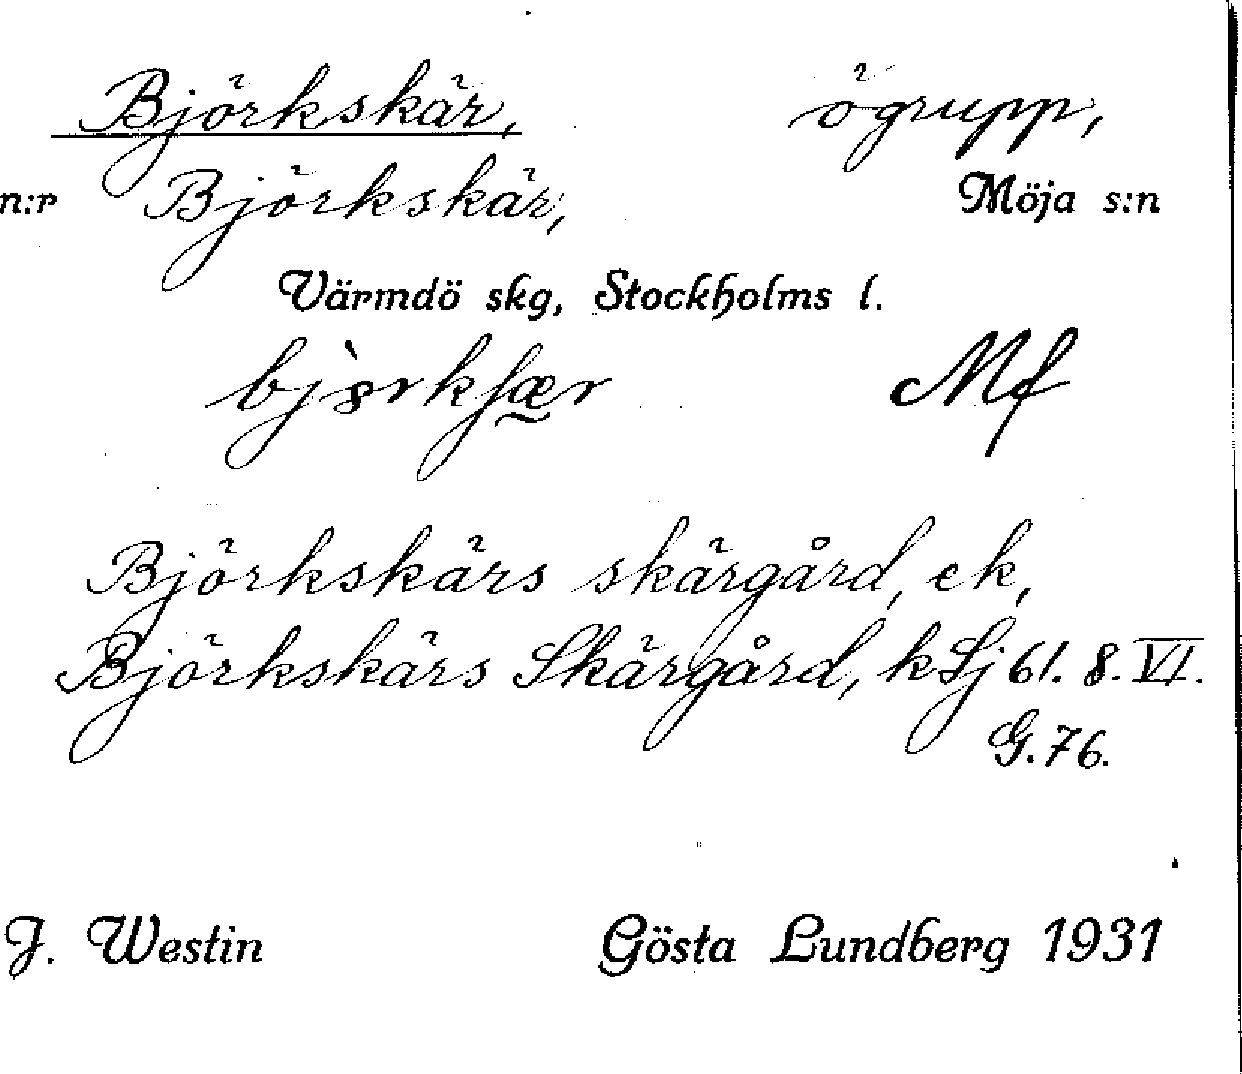 Björkskär, ögrupp,
n:r Björkskär, Möja s:n
Värmdö skg, Stockholms l.
Björkskärs skärgård, ek,
Björkskärs Skärgård, k Lj 61. 8. VI.
G. 76.
J. Westin Gösta Lundberg 1931